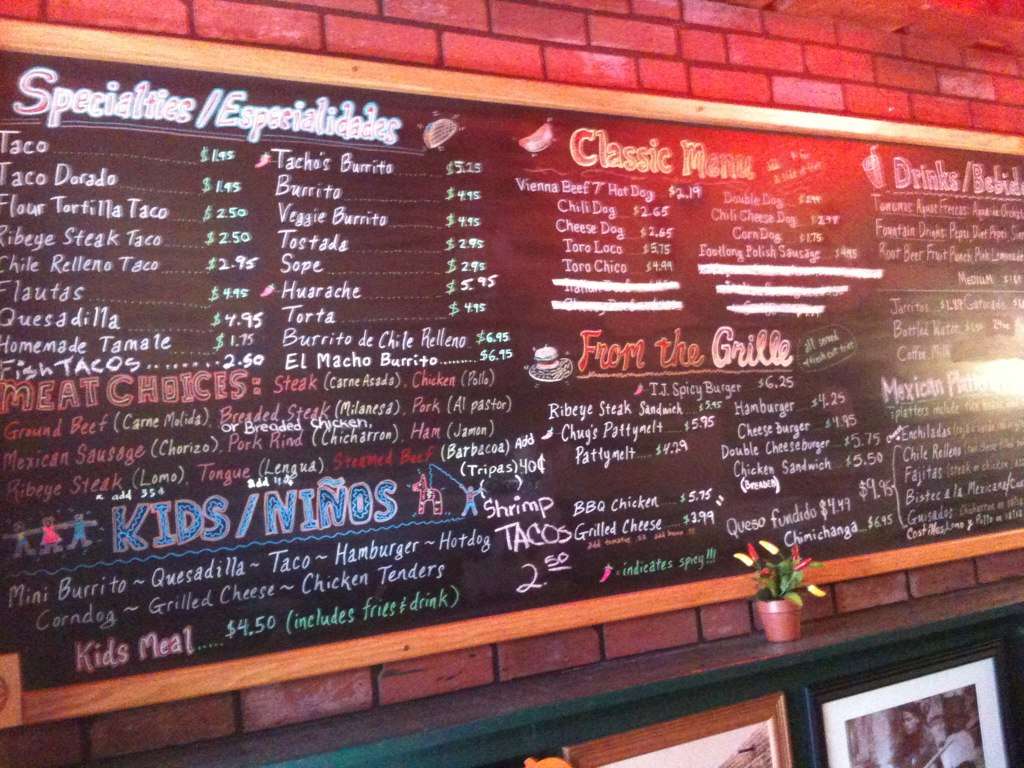 Specialties/Especialidades
Taco $1.95
Taco Dorado $1.95
Flour Tortilla Taco $2.50
Ribeye Steak Taco $2.50
Chile Relleno Taco $2.95
Flautas $4.95
Quesadilla $4.95
Homemade Tamale $1.75
Fish TACOS........2.50
Tacho's Burrito $5.25
Burrito $4.95
Veggie Burrito $4.95
Tostada $2.95
Sope $2.95
Huarache $5.95
Torta $4.95
Burrito de Chile Relleno $6.95
El Macho Burrito........ $6.95
MEAT CHOICES: Steak (Carne Asada), Chicken (Pollo)
Ground Beef (Carne Molida), Breaded Steak (Milanesa), Pork (Al pastor)
or Breaded Chicken,
Mexican Sausage (Chorizo), Pork Rind (Chicharron), Ham (Jamon)
Ribeye Steak (Lomo), Tongue (Lengua) Steamed Beef (Barbacoa) Add
add 35¢
(Tripas) 40¢
KIDS/NIÑOS
Mini Burrito ~ Quesadilla ~ Taco ~ Hamburger ~ Hotdog
Corndog ~ Grilled Cheese ~ Chicken Tenders
Kids Meal..... $4.50 (includes fries & drink)
Shrimp
TACOS
2.50
Classic Menu
Vienna Beef 7" Hot Dog $2.19
Chili Dog $2.65
Cheese Dog $2.65
Toro Loco $5.75
Toro Chico $4.99
Double Dog
Chili Cheese Dog
Corn Dog $1.75
Footlong Polish Sausage $4.95
From the Grille
all served
T.J. Spicy Burger $6.25
Ribeye Steak Sandwich... $5.95
Chuy's Pattymelt $5.95
Pattymelt.... $4.29
BBQ Chicken $5.75
Grilled Cheese $3.99
Hamburger $4.25
Cheese Burger $4.95
Double Cheeseburger $5.75
Chicken Sandwich $5.50
(BREADED)
Queso fundido $4.49
Chimichanga.. $6.95
= indicates spicy!!!
Drinks/Bebid
Fountain Drinks: Pepsi Diet Pepsi
Root Beer Fruit Punch Pink Lemonade
MEDIUM
Jarritos Gatorade
Bottled Water
Coffee, Milk
Mexican
Enchiladas
Chile Relleno
Fajitas (steak or chicken
Bistec a la Mexicana
Guisados
$9.95